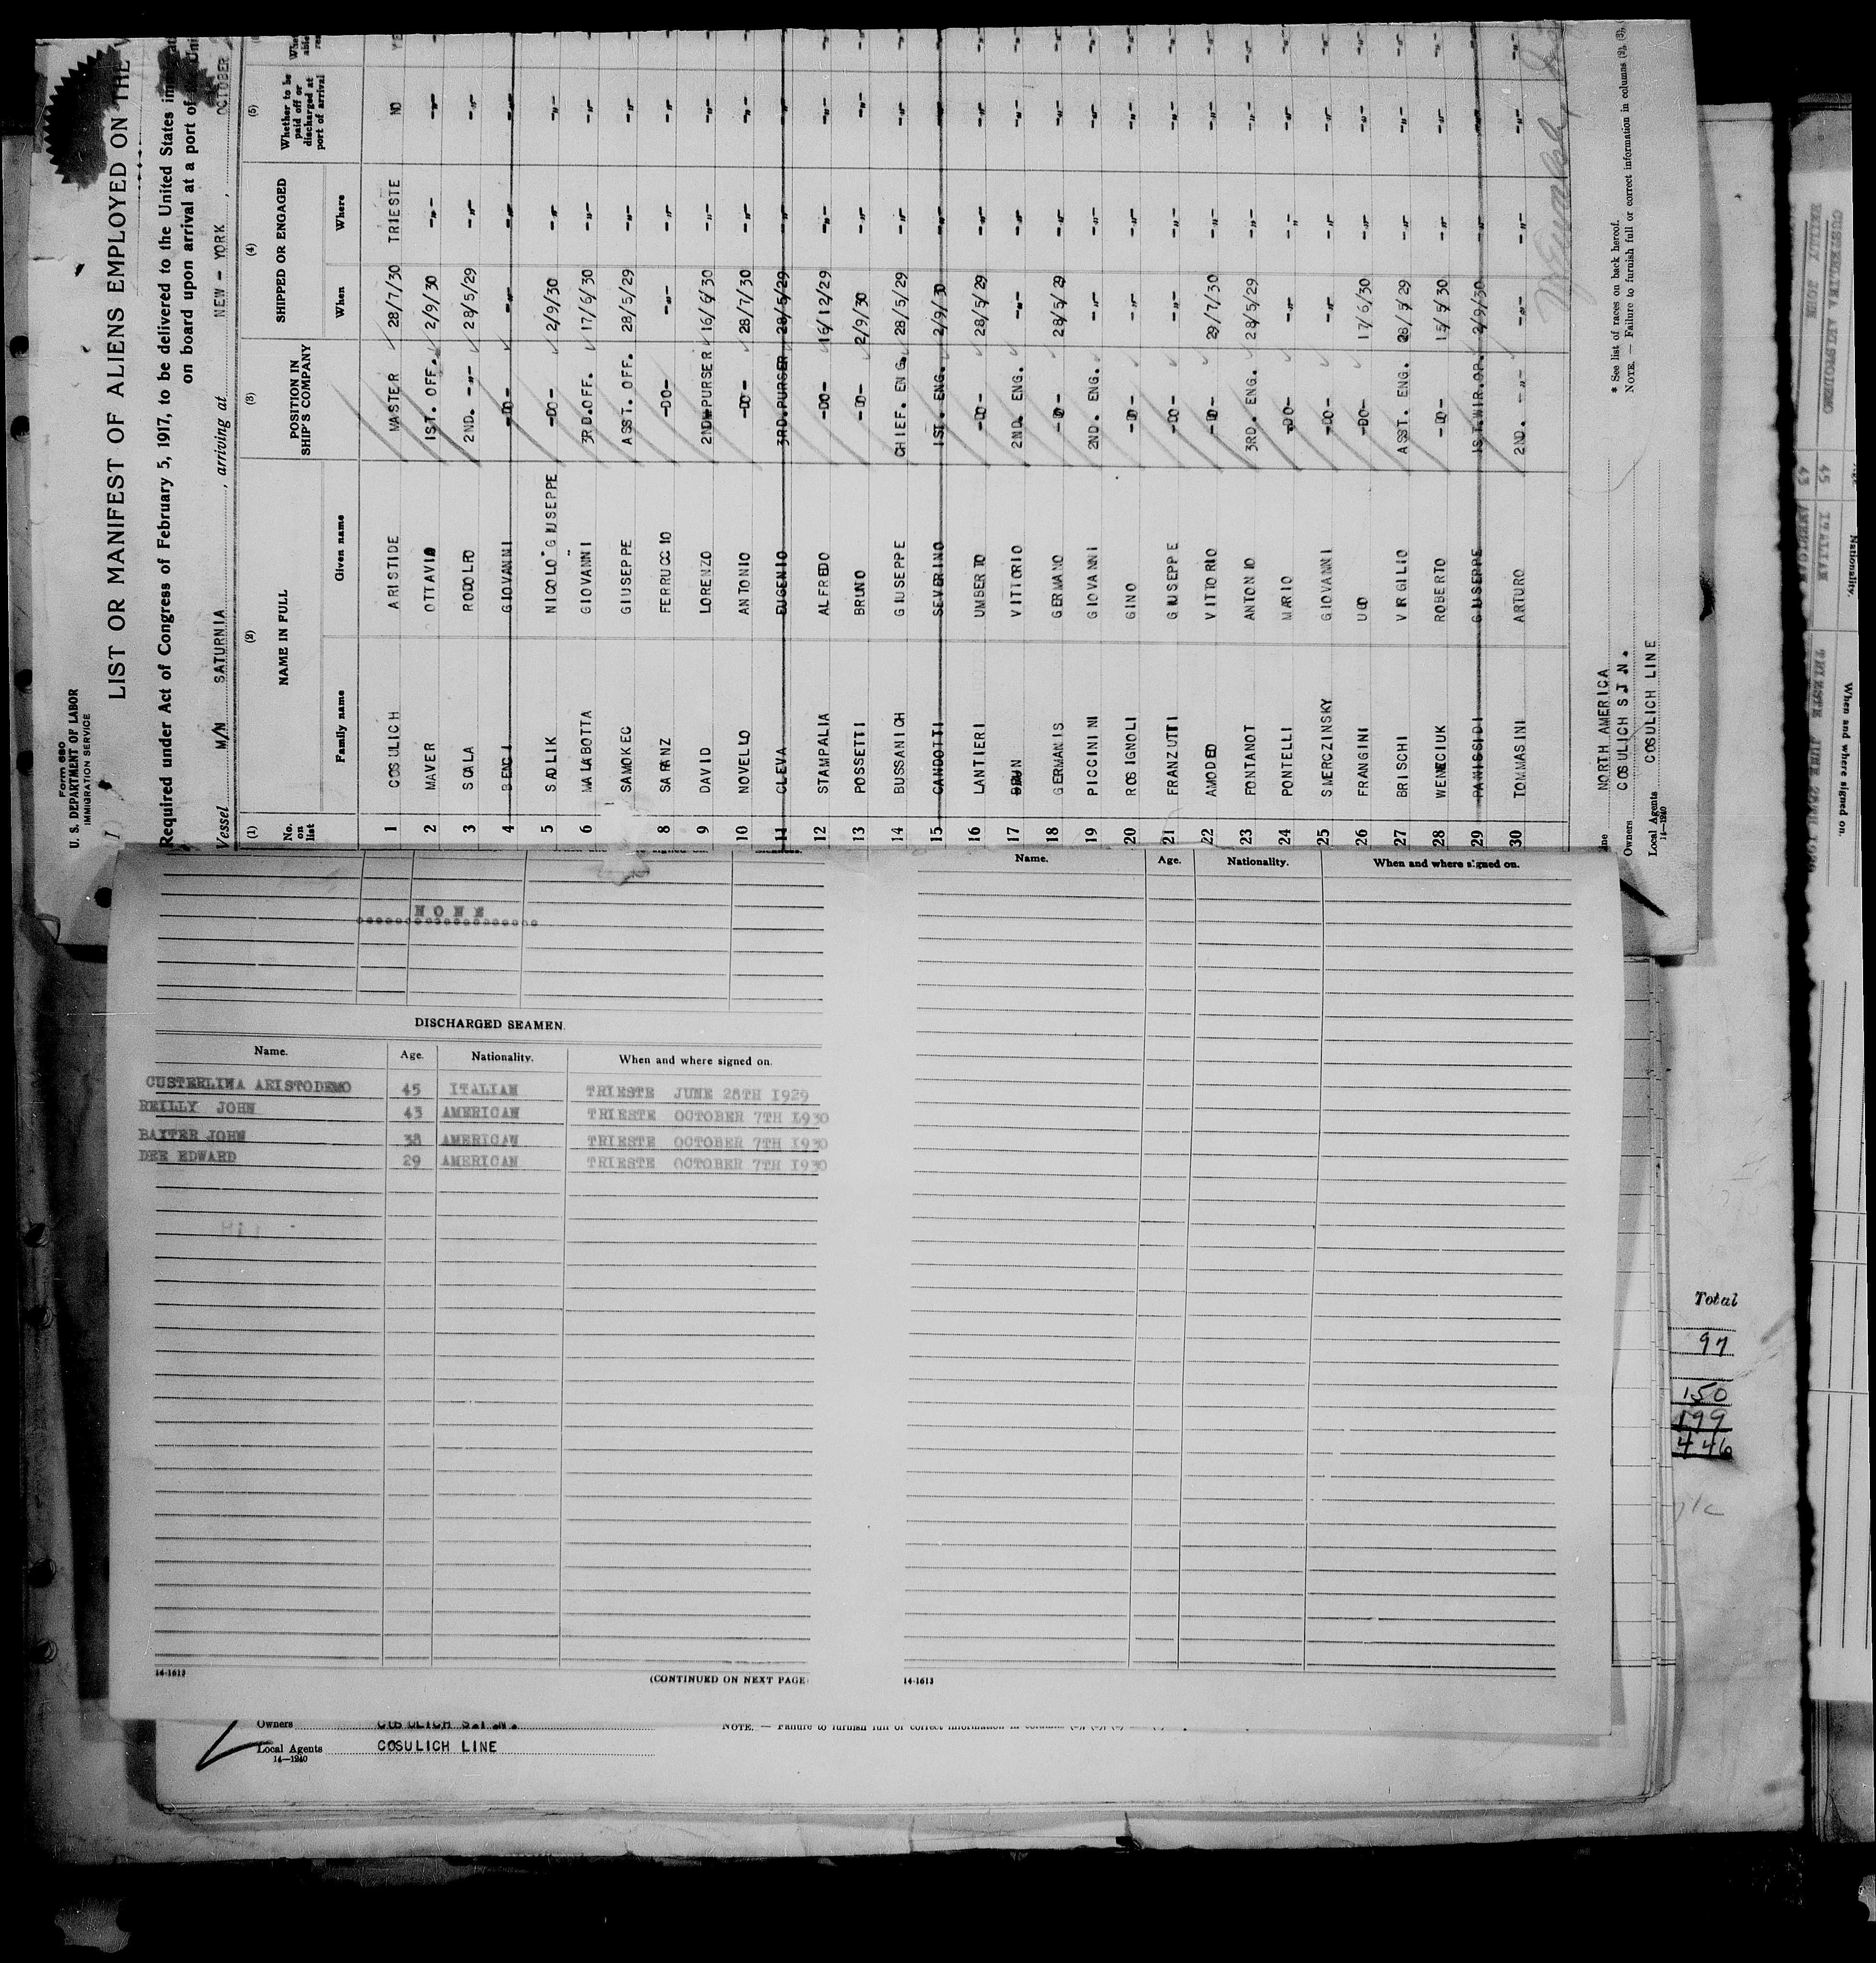 Form 680
U. S. DEPARTMENT OF LABOR
IMMIGRATION SERVICE
LIST OR MANIFEST OF ALIENS EMPLOYED ON THE
Required under Act of Congress of February 5, 1917, to be delivered to the United States
on board upon arrival at a port of
Vessel M/N SATURNIA, arriving at NEW - YORK, OCTOBER
(1) (2) (3) (4) (5)
No. on list NAME IN FULL POSITION IN SHIP'S COMPANY SHIPPED OR ENGAGED Whether to be paid off or discharged at port of arrival
Family name Given name When Where
1 COSULICH ARISTIDE MASTER 28/7/30 TRIESTE NO
2 MAVER OTTAVIO 1ST. OFF. 2/9/30 -"- -"-
3 SCALA RODOLFO 2ND. -"- 28/5/29 -"- -"-
4 BENCI GIOVANNI -DO- -"- -"- -"-
5 SADLIK NICOLO' GIUSEPPE -DO- 2/9/30 -"- -"-
6 MALABOTTA GIOVANNI 3RD.OFF. 17/6/30 -"- -"-
SAMOKEC GIUSEPPE ASST. OFF. 28/5/29 -"- -"-
8 SAFANZ FERRUCCIO -DO- -"- -"- -"-
9 DAVID LORENZO 2ND.PURSER 16/6/30 -"- -"-
10 NOVELLO ANTONIO -DO- 28/7/30 -"- -"-
11 CLEVA EUGENIO 3RD.PURSER 28/5/29 -"- -"-
12 STAMPALIA ALFREDO -DO- 16/12/29 -"- -"-
13 POSSETTI BRUNO -DO- 2/9/30 -"- -"-
14 BUSSANICH GIUSEPPE CHIEF. ENG. 28/5/29 -"- -"-
15 CANDOTTI SEVERINO 1ST. ENG. 2/9/30 -"- -"-
16 LANTIERI UMBERTO -DO- 28/5/29 -"- -"-
17 BRUN VITTORIO 2ND. ENG. -"- -"- -"-
18 GERMANIS GERMANO -DO- 28/5/29 -"- -"-
19 PICCININI GIOVANNI 2ND. ENG. -"- -"- -"-
20 ROSIGNOLI GINO -DO- -"- -"- -"-
21 FRANZUTTI GIUSEPPE -DO- -"- -"- -"-
22 AMODEO VITTORIO -DO- 29/7/30 -"- -"-
23 FONTANOT ANTONIO 3RD. ENG. 28/5/29 -"- -"-
24 PONTELLI MARIO -DO- -"- -"- -"-
25 SMERCZINSKY GIOVANNI -DO- -"- -"- -"-
26 FRANGINI UGO -DO- 17/6/30 -"- -"-
27 BRISCHI VIRGILIO ASST. ENG. 28/5/29 -"- -"-
28 WENECIUK ROBERTO -DO- 15/5/30 -"- -"-
29 PANISSIDI GIUSEPPE 1ST.WIR.OP. 2/9/30 -"- -"-
30 TOMMASINI ARTURO 2ND. -"- -"- -"- -"-
NORTH AMERICA
Owners COSULICH S.T.N.
Local Agents COSULICH LINE
14-1240
* See list of races on back hereof.
NOTE. — Failure to furnish full or correct information in columns (2), (3),
NONE
DISCHARGED SEAMEN.
Name. Age. Nationality. When and where signed on.
CUSTERLINA ARISTODEMO 45 ITALIAN TRIESTE JUNE 28TH 1929
REILLY JOHN 43 AMERICAN TRIESTE OCTOBER 7TH 1930
BAXTER JOHN 38 AMERICAN TRIESTE OCTOBER 7TH 1930
DEE EDWARD 29 AMERICAN TRIESTE OCTOBER 7TH 1930
14-1613
(CONTINUED ON NEXT PAGE
Name. Age. Nationality. When and where signed on.
14-1613
Total
97
150
199
446
Owners COSULICH S.T.N.
NOTE. — Failure to furnish full or correct information in columns
Local Agents COSULICH LINE
14—1240
Nationality. When and where signed on.
CUSTERLINA ARISTODEMO 45 ITALIAN TRIESTE JUNE 28TH 1929
REILLY JOHN 43 AMERICAN